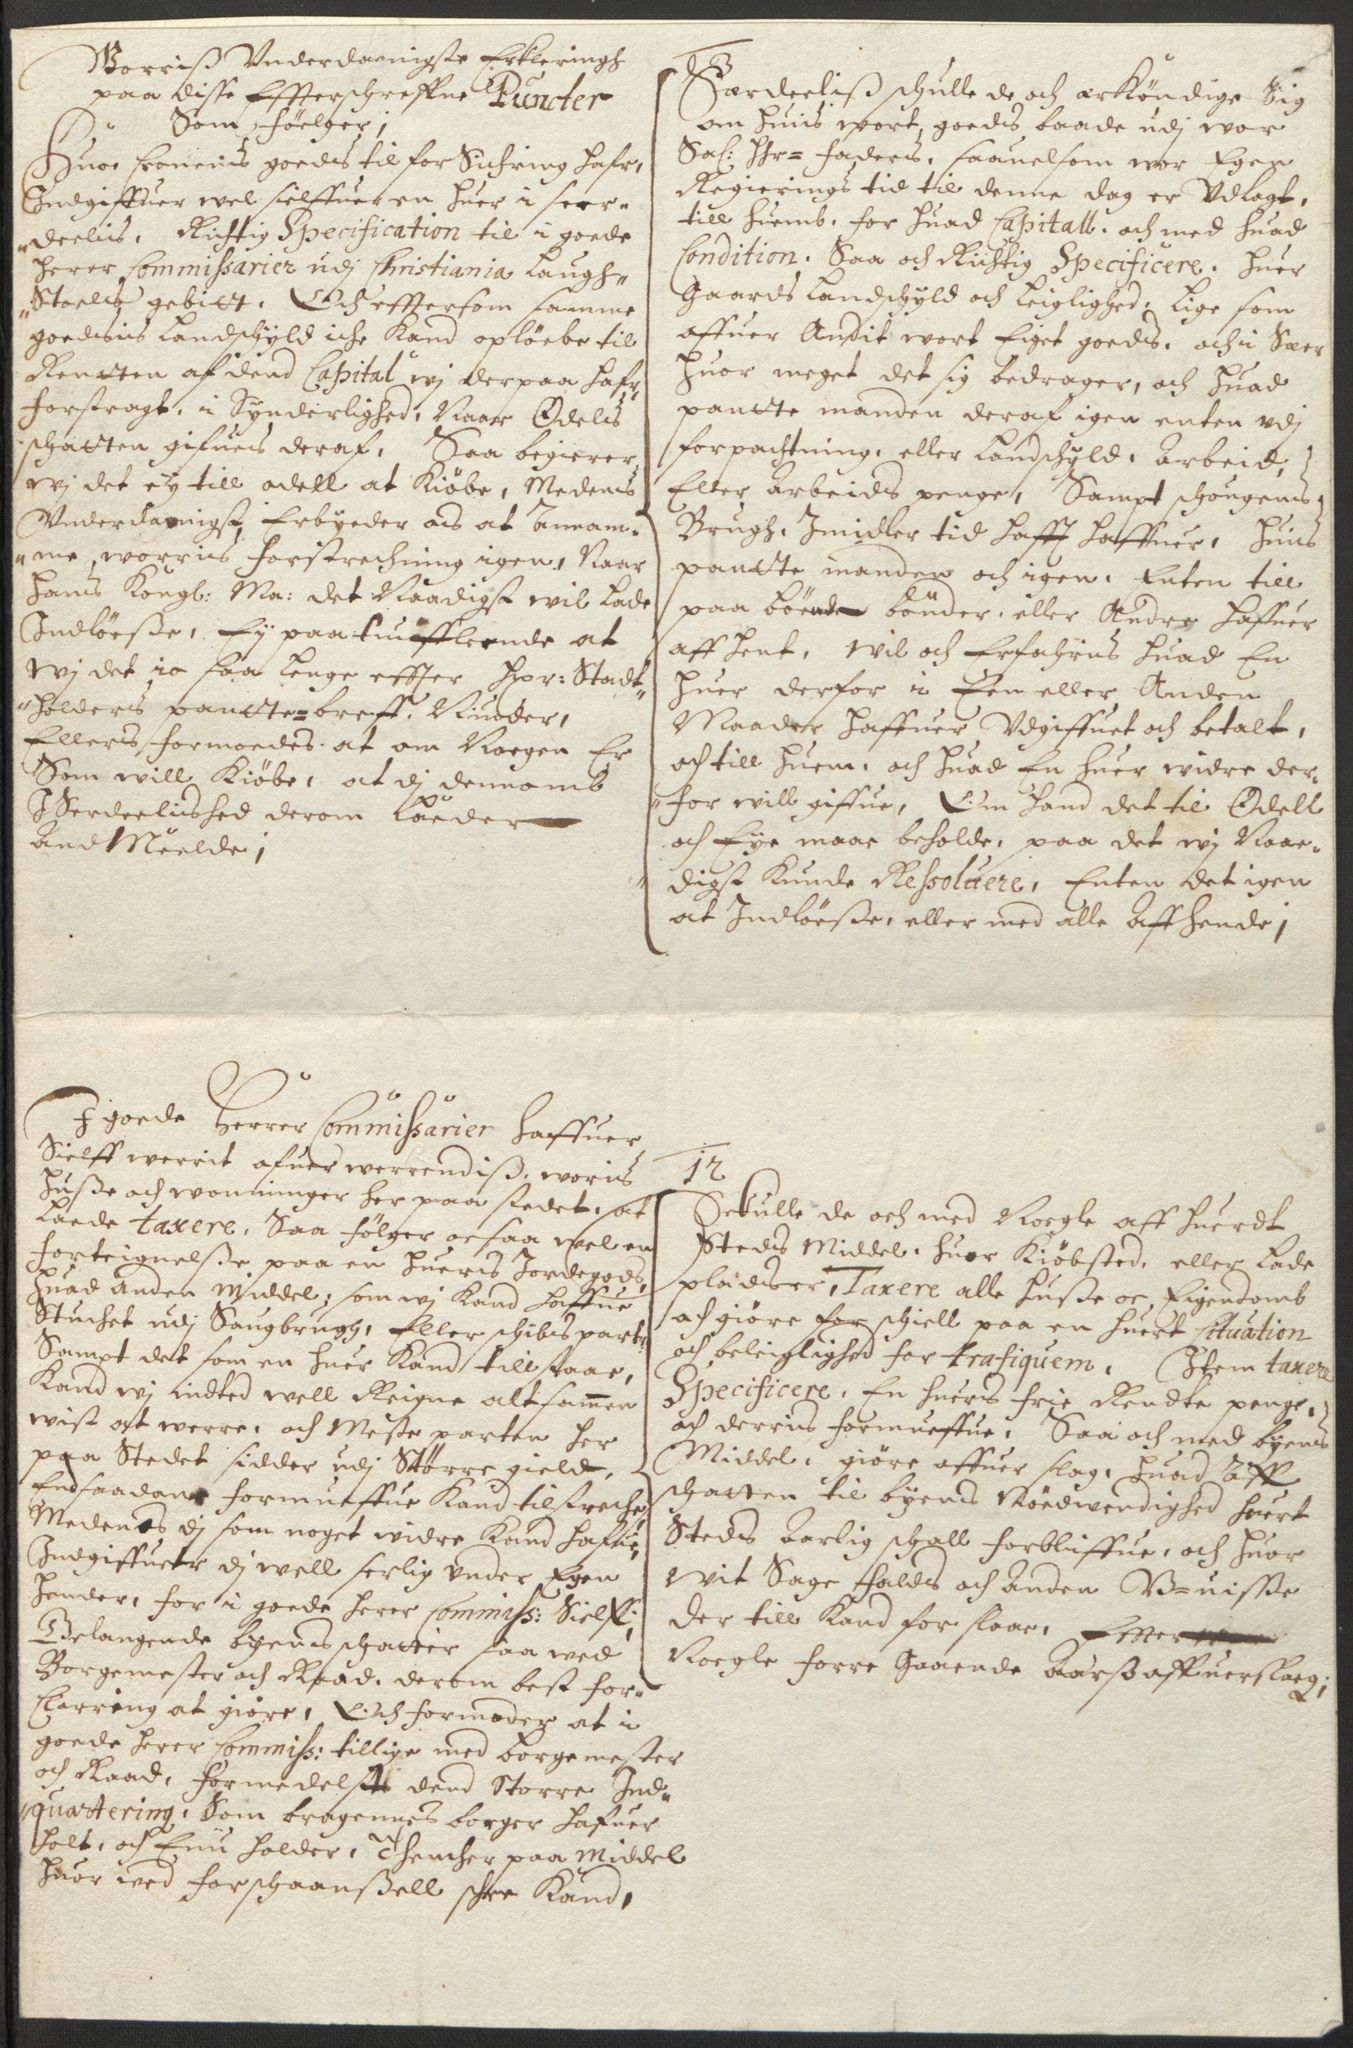 Worriß Vnderdaanigste Erkleringh
paa disse Effterschreffne Puncter
Som föelger;
Huor Cronens goeds til forSichring hafr,
Indgiffuer wel sielffuer en huer i seer-
deelis, Richtig Specification til i goede
herer Commissarier udj Christiania Laugh-
Stoells gebiett. Och efftersom samme
goedsis Landschyld iche Kand oplöebe til
Rentten af dend Capital wj derpaa hafr
forstragt, i Synderlighed, Naar Odels
schatten gifues deraf, Saa begierer
wj det ey till odell at Kiöbe, Medens
Vnderdanigst, Erbyeder os at Annam-
me worris forstrechning igen, Naar
Hans Kongl: Ma: det Naadigst wil Lade
Indlöeße, Ey paatuifflende at
wj det io saa Lenge effter Hr: Stadt-
holders pantte-breff. Niuder,
Ellers formoedes at om Noegen Er
Som will Kiöbe, at dj dennomb
I Serdeelished derom Laeder
And Meelde;
13
Særdeeliß schulle de och erKöndige Sig
om huis wort goeds baade udj wor
Sal: Hr= faders, saauelsom wor Egen
Regierings tid til denne dag er Vdlagt,
till huemb, for huad Capitall, och med huad
Condition. Saa och Richtig Specificere, huer
Gaards Landschyld och Leiglighed, Lige som
offuer Andit wort Eiget goeds, och i Seer
huor meget det sig bedrager, och huad
pantte manden deraf igen enten udj
forpachtning, eller Landschyld, Arbeid,
Eller Arbeids penge, Sampt schougens
Brugh, Imidler tid hafft haffuer, huis
pantte manden och igen, Enten till
paa boende bönder, eller Andre haffuer
aff hent, wil och Erfahris huad En
huer derfor i Een eller Anden
Maader haffuer Vdgiffuet och betalt,
och till huem, och huad En huer widre der-
for will giffue, Om hand det til Odell
och Eye maae beholde, paa det wj Naa-
digst Kunde Ressoluere, Enten det igen
at Indlöeße, eller med alle Affhende;
I goede Herrer Commissarier haffuer
Sielff werrit ofuerwerrendiß, woris
huße och wonninger her paa stedet, at
Laede taxere, Saa fölger ocsaa wel en
forteignelse paa en huers Jordegods,
huad Anden Middel, som wj Kand haffue
Stuchet udj Saugbrugh, Eller schibsparter
Sampt det som en huer Kand tillstaae,
Kand wj indted well Reigne altsammen
wist at werre, och Meste parten her
paa Stedet sidder udj Större gield,
End saadan formueffue Kand tilstreche,
Medens dj som noget widre Kand hafue,
Indgiffuetr dj well serlig under Egen
hender, for i goede herer Commiss: Sielff;
Belangende byens schatter saa wed
Borgemester och Raad, derom best for-
Clarring at giöre, Och formoder at i
goede herer Commiss: tillige med borgemester
och Raad, formedelst dend Storre Ind-
quartering, Som bragennes borger hafuer
holt, och Enu holder, Thencher paa Middel
huor wed forschaanßell schee Kand,
12
Schulle de och med Noegle aff huerdt
Steds Middel, huor Kiöbsted, eller Lade
pladser, Taxere alle huße oc Eigendomb
och giöre for schiell paa en huert situation
och beleiglighed for trafiquem, Item taxere
Specificere, En huers frie Rendte penge,
och derris formueffue, Saa och med byens
Middel, giöre offuer slag, huad Aff
schatten til byens Nöedwendighed huert
Steds Aarlig schall forbliffue, och huor
wit Sage falds och Anden V=uisse
der till Kand for slaae, Effter
Noegle forre Gaaende Aarß offuerslaeg;